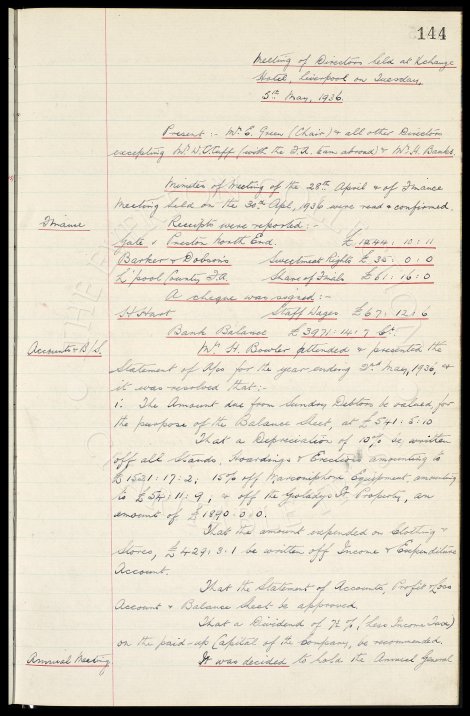 144
Meeting of Directors held at Exchange
Hotel, Liverpool on Tuesday,
5th May, 1936.
Present :- Mr. E. Green (Chair) & all other Directors
excepting Mr. W.C. Cuff (with the F.A. team abroad) & Mr. H. Banks.
Minutes of Meeting of the 28th April & of Finance
Meeting held on the 30th Apl, 1936 were read & confirmed.
Finance
Receipts were reported :-
Gate v Preston North End. £ 1244 : 10 : 11
Barker & Dobsons Sweetmeat Rights £ 35 : 0 : 0
L'pool County F.A. Share of Finals £ 61 : 16 : 0
A cheque was signed :-
H. Hart Staff Wages £ 67 : 12 : 6
Bank Balance £ 3971 : 14 : 7 Cr.
Accounts & B/S.
Mr. H. Bowler attended & presented the
Statement of A/cs for the year ending 2nd May, 1936, &
it was resolved that :-
1. The Amount due from Sundry Debtors be valued, for
the purpose of the Balance Sheet, at £ 541 : 5 : 10
That a Depreciation of 10% be written
off all Stands, Hoardings & Erections amounting to
£ 1521 : 17 : 2, 15% off Marconiphone Equipment, amounting
to £ 54 : 11 : 9, & off the Goodison Property, an
amount of £ 1890 : 0 : 0.
That the amount expended on Clothing &
Stores, £ 429 : 3 : 1 be written off Income & Expenditure
Account.
That the Statement of Accounts, Profit & Loss
Account & Balance Sheet be approved.
That a Dividend of 7½% (less Income Tax)
on the paid-up Capital of the Company, be recommended.
Annual Meeting
It was decided to hold the Annual General